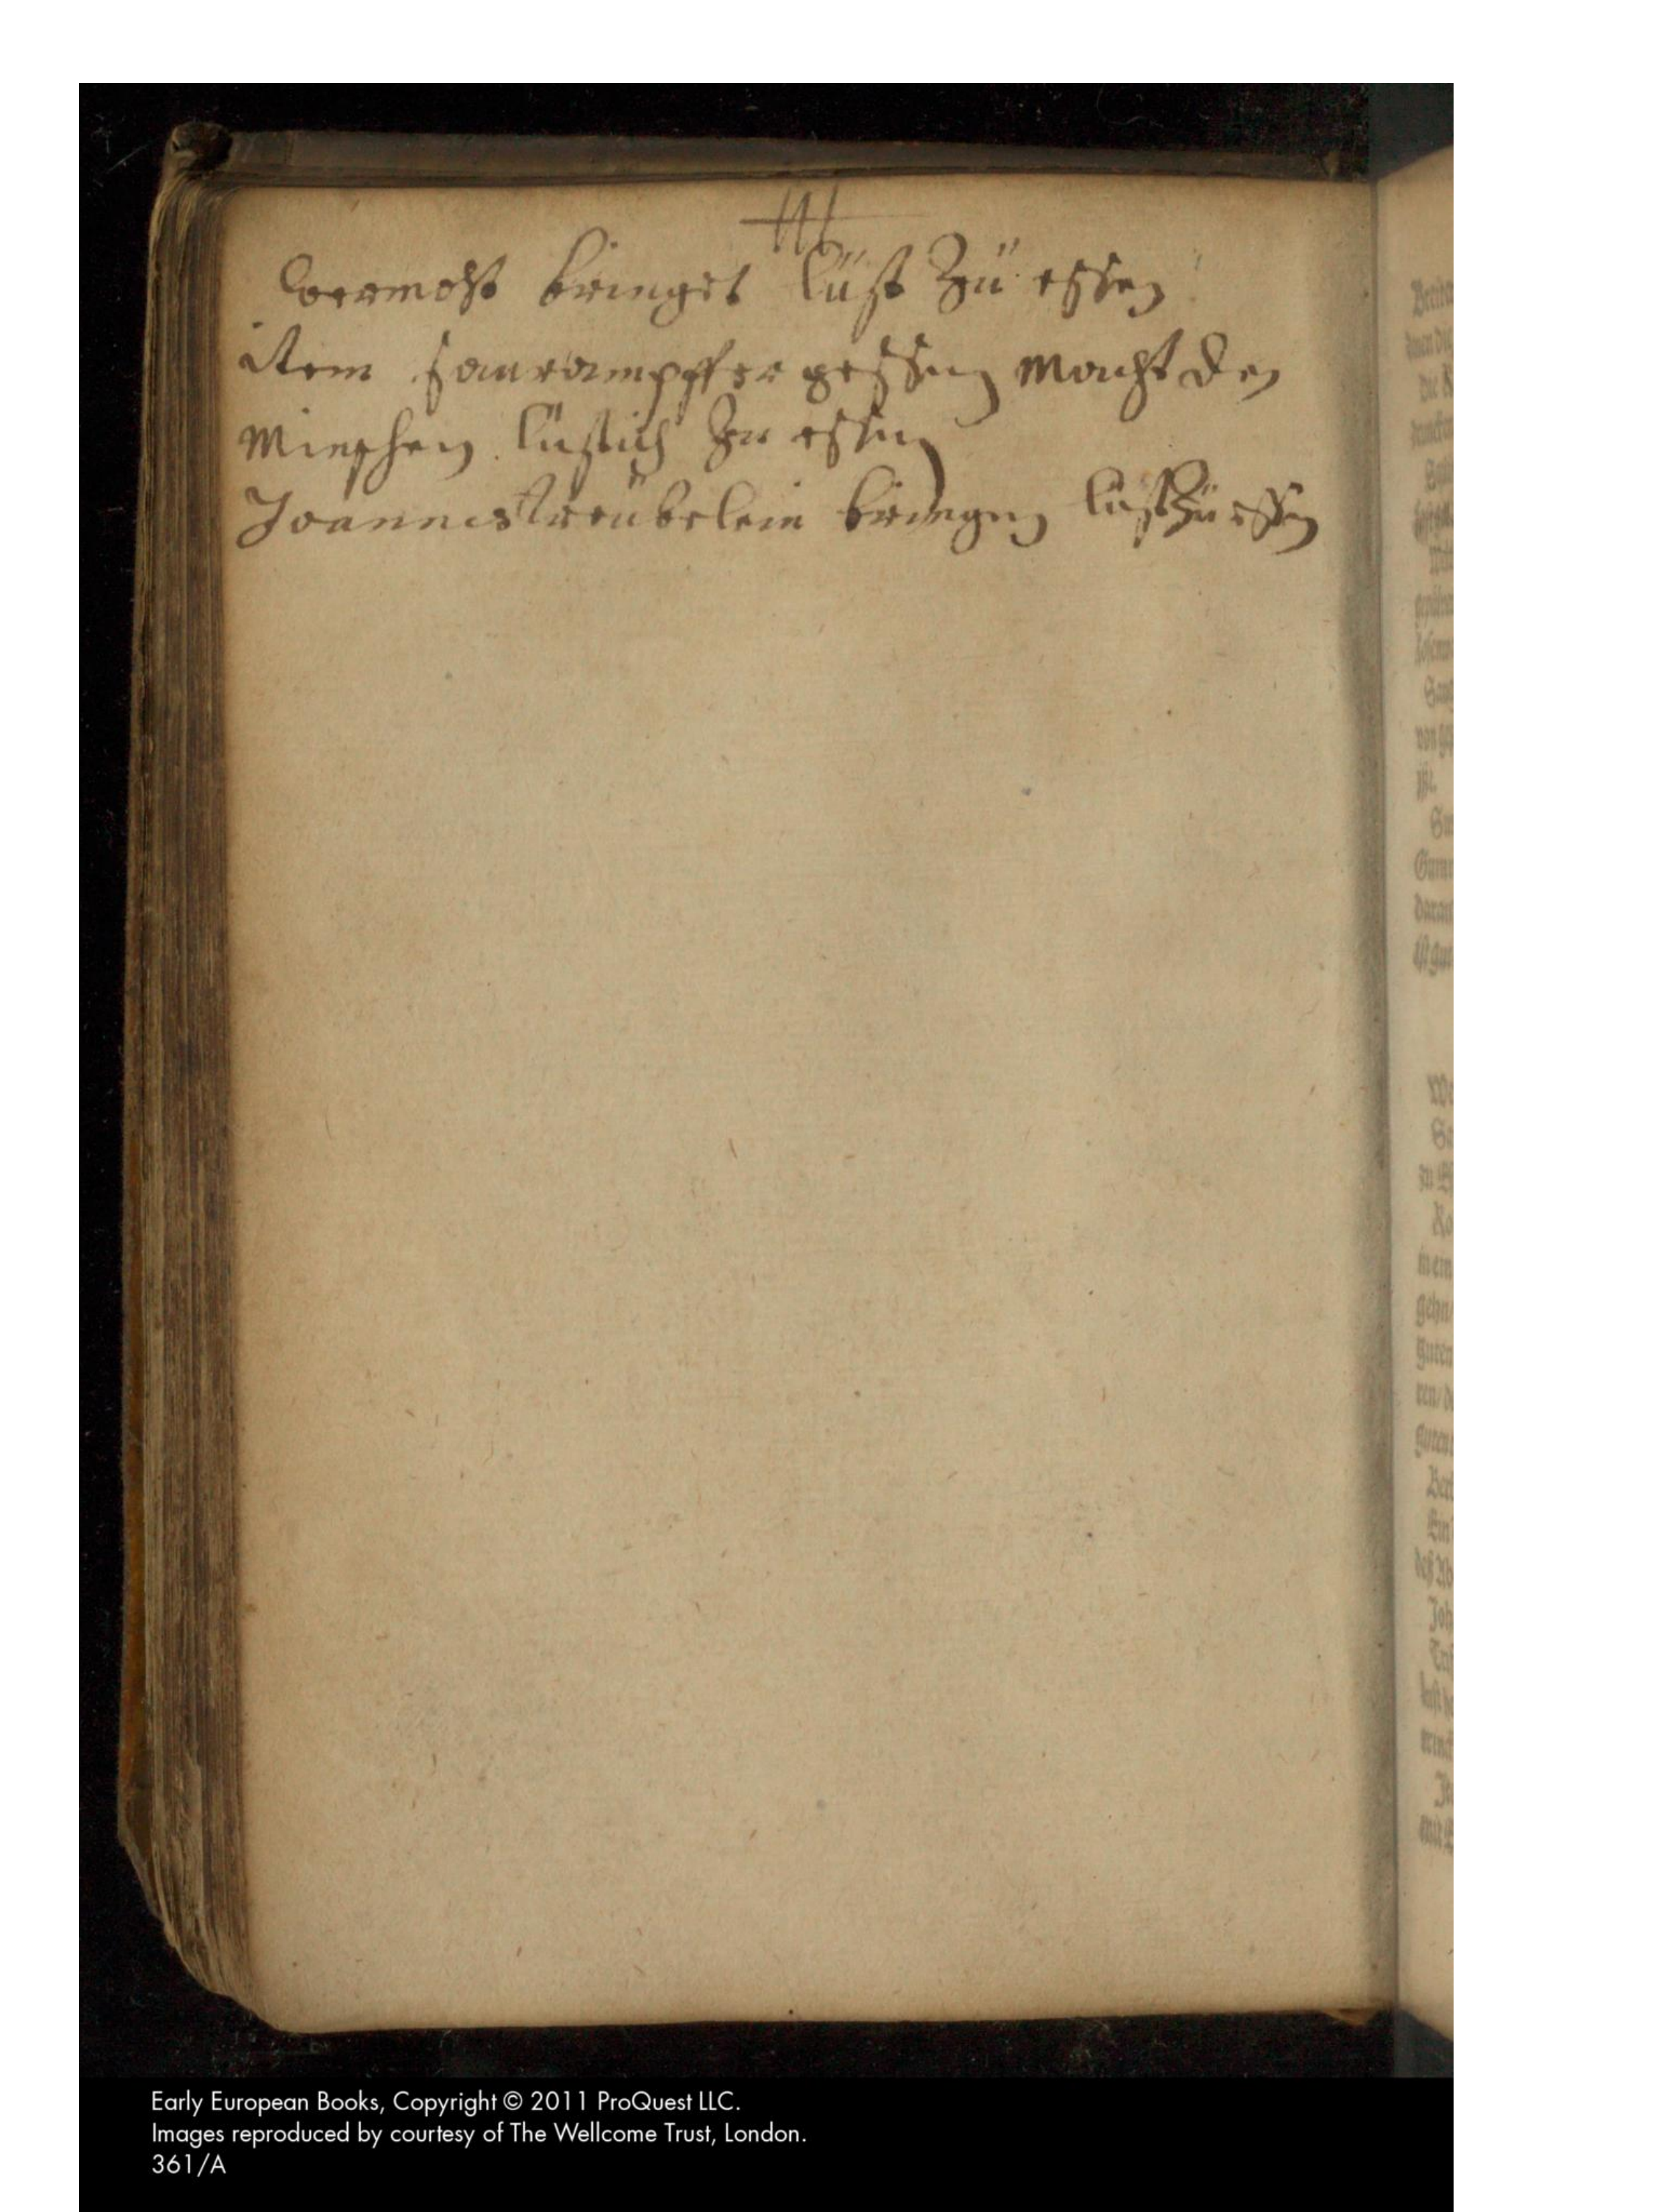 wermoht bringet lüst Zü essen
item sawrampffer gessen macht den
mienschen lüstich zu essen
Joannistreübelein bringen lüst Zü essen
Early European Books, Copyright © 2011 ProQuest LLC.
Images reproduced by courtesy of The Wellcome Trust, London.
361/A